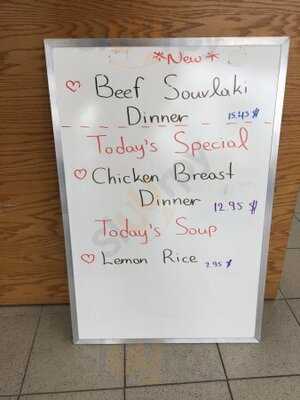 *New*
♡ Beef Souvlaki
Dinner 15.45 $
Today's Special
♡ Chicken Breast
Dinner 12.95 $
Today's Soup
♡ Lemon Rice 2.95 $